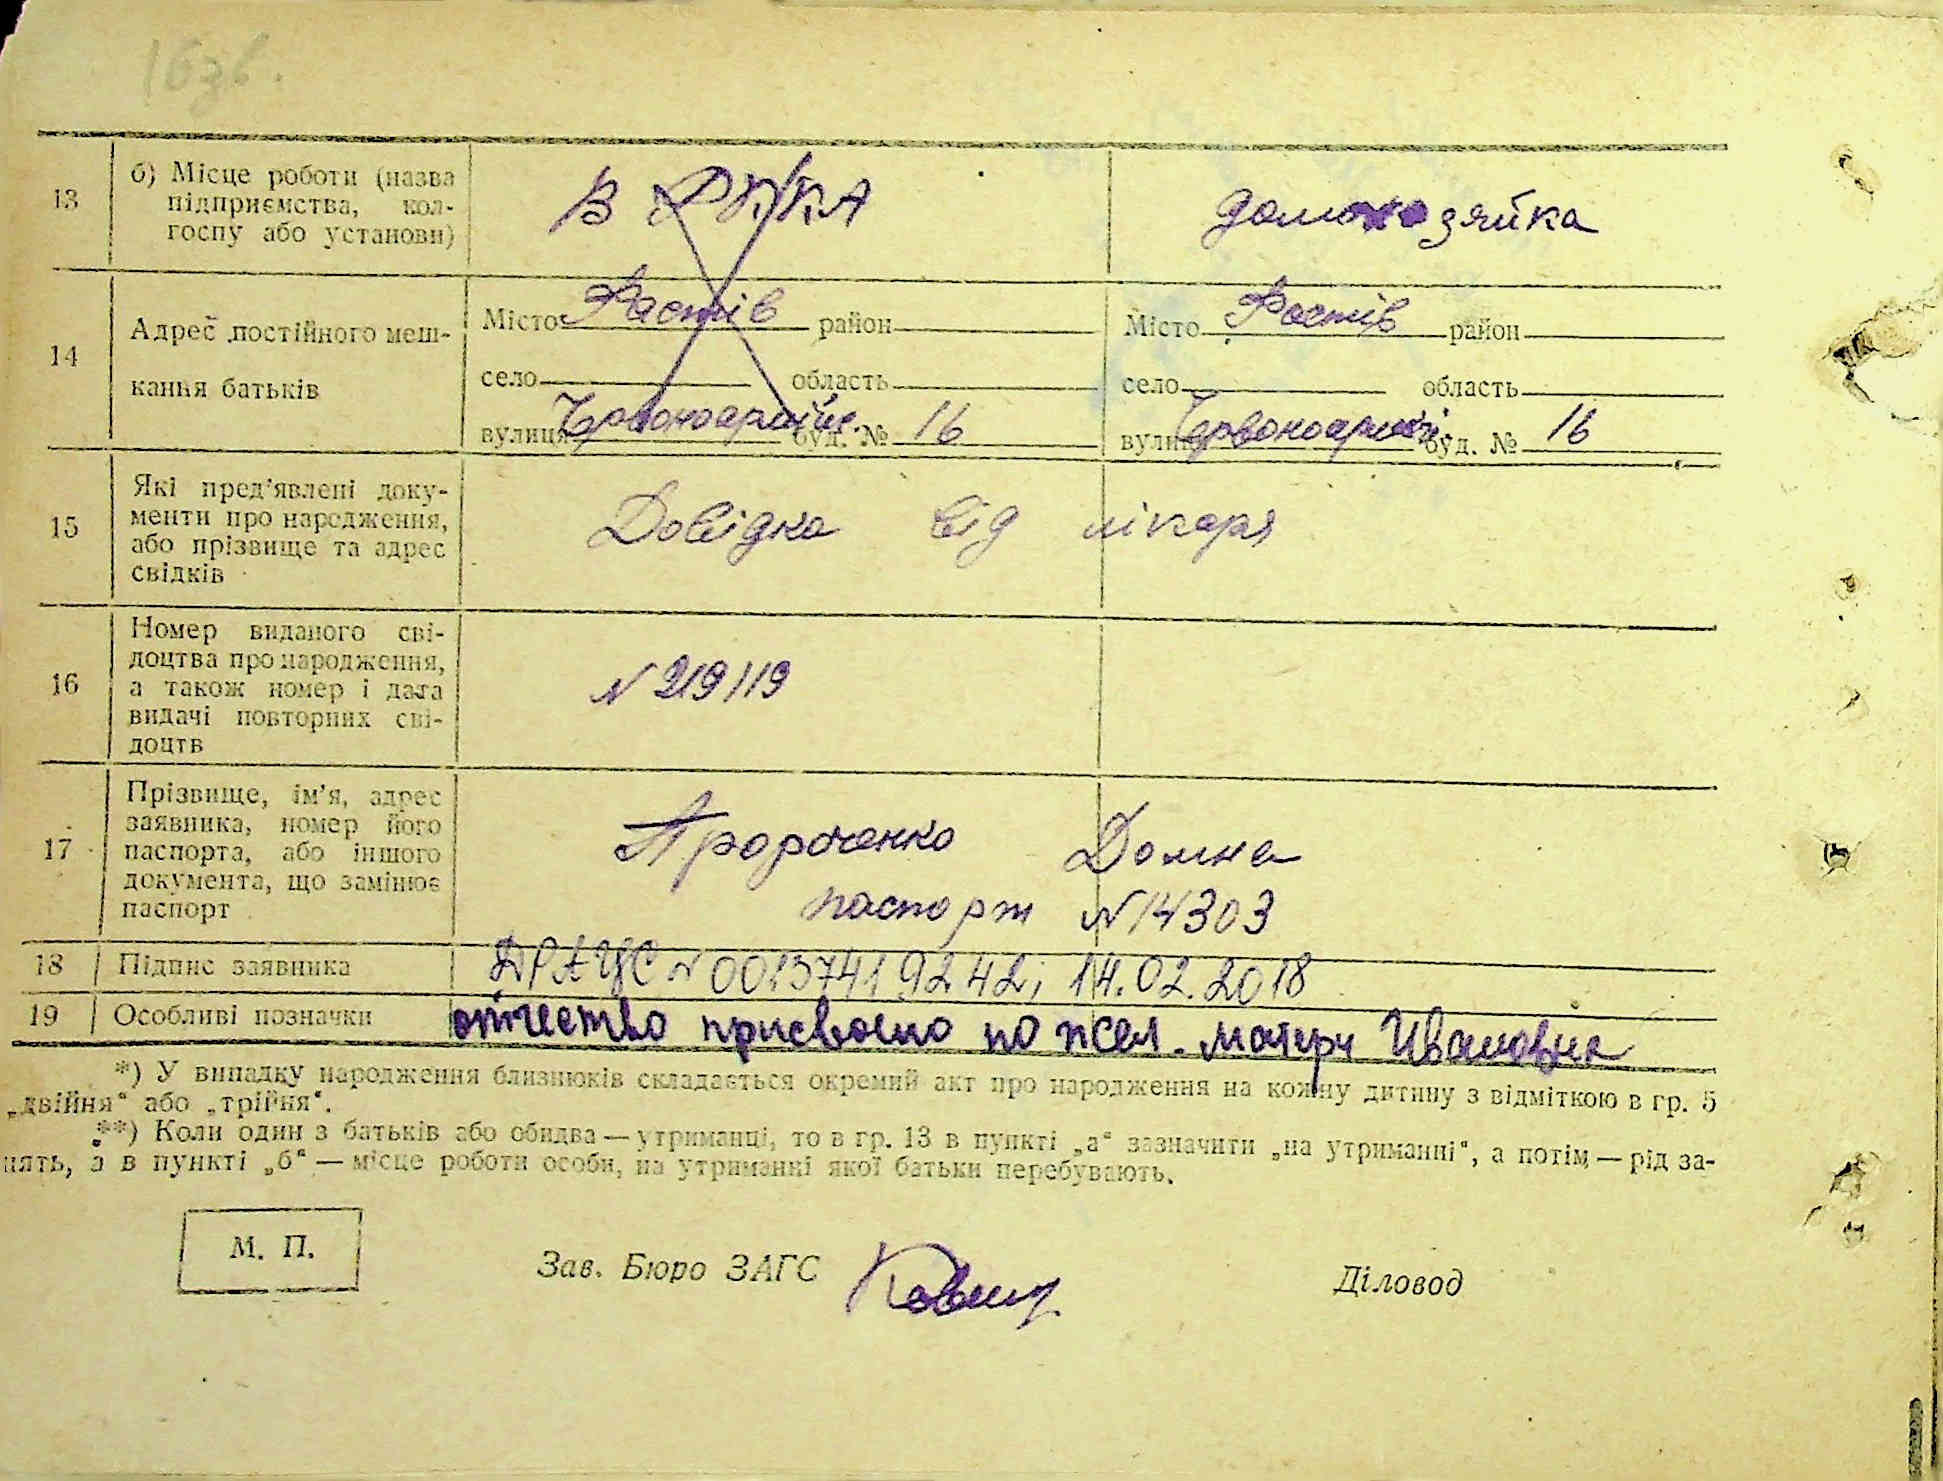 163б.
13
б) Місце роботи (назва
підприємства, кол-
госпу або установи)
В РККА
домохозяйка
14
Адрес постійного меш-
кання батьків
Місто Фастів район
село область
вулиця Червоноармійс. буд. № 16
Місто Фастів район
село область
вулиця Червоноармій. буд. № 16
15
Які пред'явлені доку-
менти про народження,
або прізвище та адрес
свідків
Довідка від лікаря
16
Номер виданого сві-
доцтва про народження,
а також номер і дата
видачі повторних сві-
доцтв
N 219119
17
Прізвище, ім'я, адрес
заявника, номер його
паспорта, або іншого
документа, що замінює
паспорт
Пророченко Домна
паспорт N 14303
18 Підпис заявника
ДРАЦС N 00137419242; 14.02.2018
19 Особливі позначки
отчество присвоено по жел. матери Ивановна
*) У випадку народження близнюків складається окремий акт про народження на кожну дитину з відміткою в гр. 5
„двійня" або „трійня".
**) Коли один з батьків або обидва — утриманці, то в гр. 13 в пункті „а" зазначити „на утриманні", а потім — рід за-
нять, а в пункті „б" — місце роботи особи, на утриманні якої батьки перебувають.
М. П.
Зав. Бюро ЗАГС
Діловод